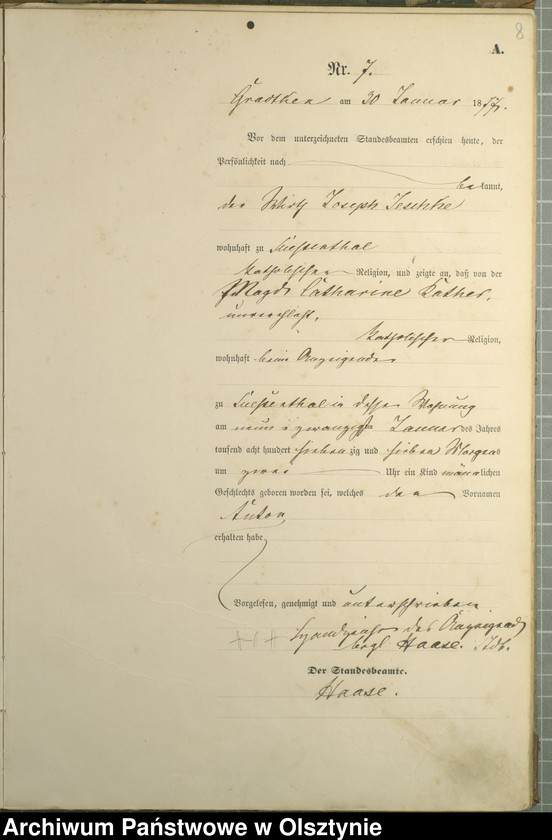 8
A.
Nr. 7.
am 30 Januar 1877.
Vor dem unterzeichneten Standesbeamten erschien heute, der
Persönlichkeit nach
bekannt,
der Wirth Joseph Jeschke
wohnhaft zu
katholischer Religion, und zeigte an, daß von der
Magd Catharine Kather,
unverehlicht,
katholischer Religion,
wohnhaft beim Anzeigenden
zu in dessen Wohnung
am neun u zwanzigsten Januar des Jahres
tausend acht hundert siebenzig und sieben Morgens
um zwei Uhr ein Kind männlichen
Geschlechts geboren worden sei, welches den Vornamen
Anton
erhalten habe
Vorgelesen, genehmigt und unterschrieben
+++ Handzeichen des Anzeigenden
Haase.
Der Standesbeamte.
Haase.
Archiwum Państwowe w Olsztynie